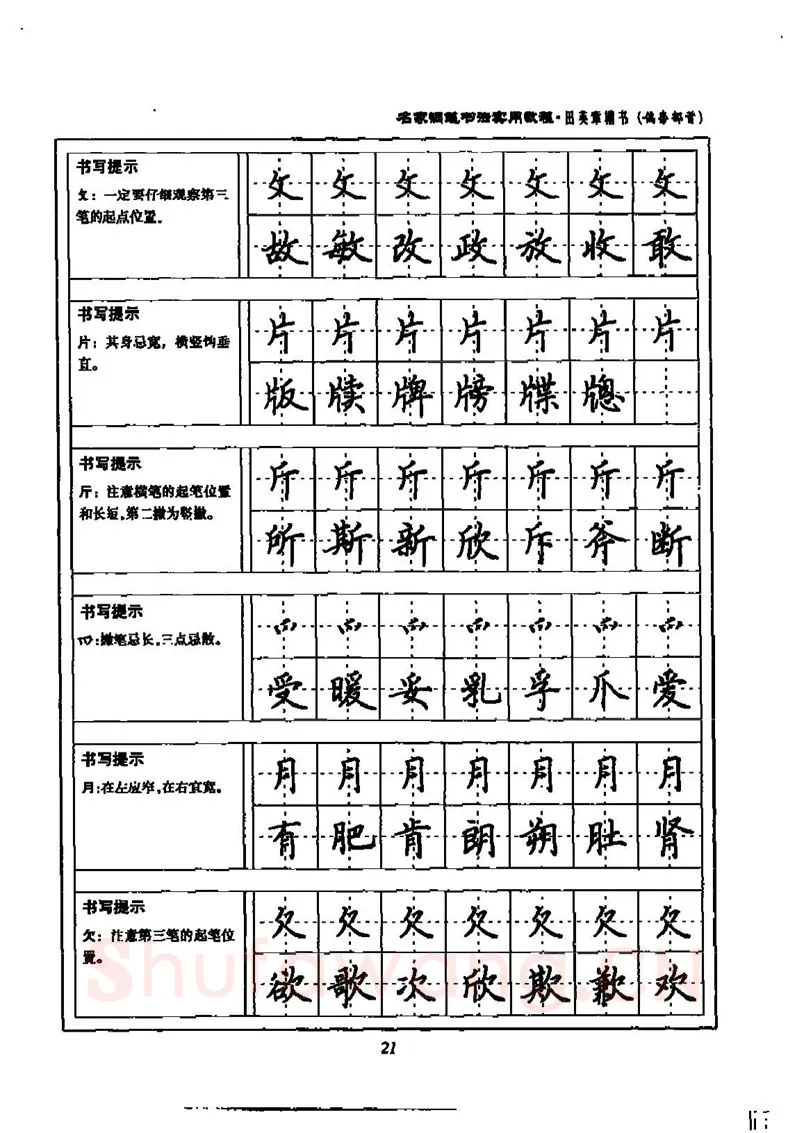 名家钢笔书法实用教程·田英章楷书(偏旁部首)
书写提示
攵：一定要仔细观察第三
笔的起点位置。
攵攵攵攵攵攵攵
故敏改政放收敢
书写提示
片：其身忌宽，横竖钩垂
直。
片片片片片片片
版牍牌牓牒牕
书写提示
斤：注意横笔的起笔位置
和长短，第二撇为竖撇。
斤斤斤斤斤斤斤
所斯新欣斥斧断
书写提示
爫：撇笔忌长，三点忌散。
爫爫爫爫爫爫爫
受暖妥乳孚爪爱
书写提示
月：在左应窄，在右宜宽。
月月月月月月月
有肥肯朗朔肚肾
书写提示
欠：注意第三笔的起笔位
置。
欠欠欠欠欠欠欠
欲歌次欣欺歉欢
Shufawang.CN
21